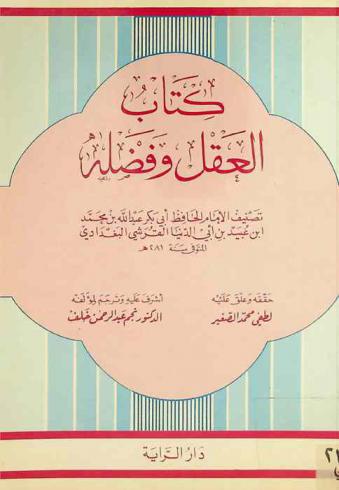 كتاب
العقل وفضله
تصنيف الإمام الحافظ أبي بكر عبد الله بن محمد
ابن عبيد بن أبي الدنيا القرشي البغدادي
المتوفى سنة ٢٨١ هـ
حققه وعلق عليه
لطفي محمد الصغير
أشرف عليه وترجم لمؤلفه
الدكتور نجم عبد الرحمن خلف
دار الراية